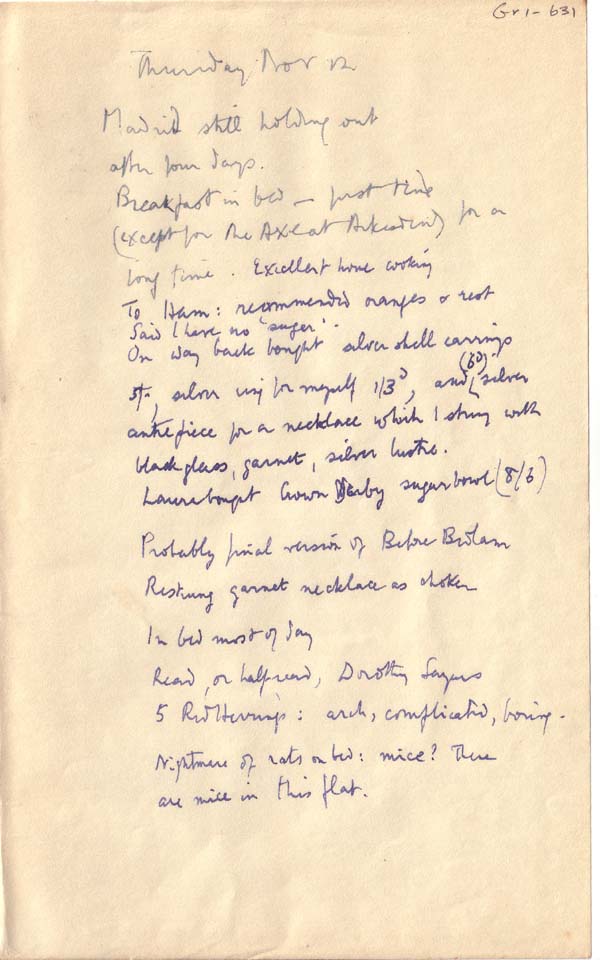 Gr1-631
Thursday Nov 12
Madrid still holding out
after four days.
Breakfast in bed – first time
(except for the Axe at Arkesden) for a
long time. Excellent home cooking
To Ham: recommended oranges & rest
Said I have no 'sugar'.
On way back bought silver shell earrings
5/-, silver ring for myself 1/3d, and (6d) silver
centrepiece for a necklace which I strung with
black glass, garnet, silver lustre.
Laura bought Crown Derby sugar bowl (8/6)
Probably final version of Before Bedlam
Restrung garnet necklace as choker
In bed most of day
Read, or half read, Dorothy Sayers
5 Red Herrings: arch, complicated, boring.
Nightmare of rats on bed: mice? There
are mice in this flat.